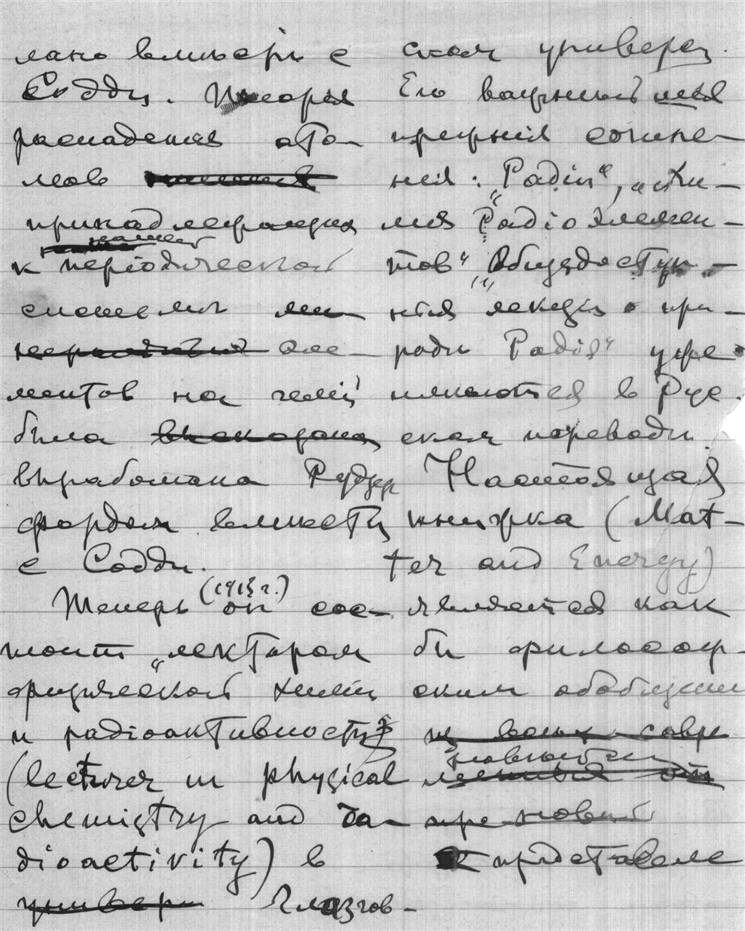 лано вмѣстѣ с
Содди. Теорія
распаденія ато-
мов
принадлежащих
к періодической
системы
эле-
ментов на гелій
была
выработана Рудзер
фордом вмѣстѣ
с Содди.
Теперь (1913 г.) он сос-
тоит „лектором
физической химіи
и радіоактивности
(lecturer in physical
chemistry and ra-
dioactivity) в
универ Глазгов-
ском универс.
Его важнѣйшія
прежнія сочине-
нія: „Радій“, „Хи-
мія Радіоэлемен-
тов“ „Общедоступ-
ныя лекціи о при-
родѣ Радія“ уже
имѣются в Рус
ском переводѣ.
Настоящая
книжка (Mat-
ter and Energy)
является как
бы философ-
ским обобщеніем
из всех совр
новѣйших

представле